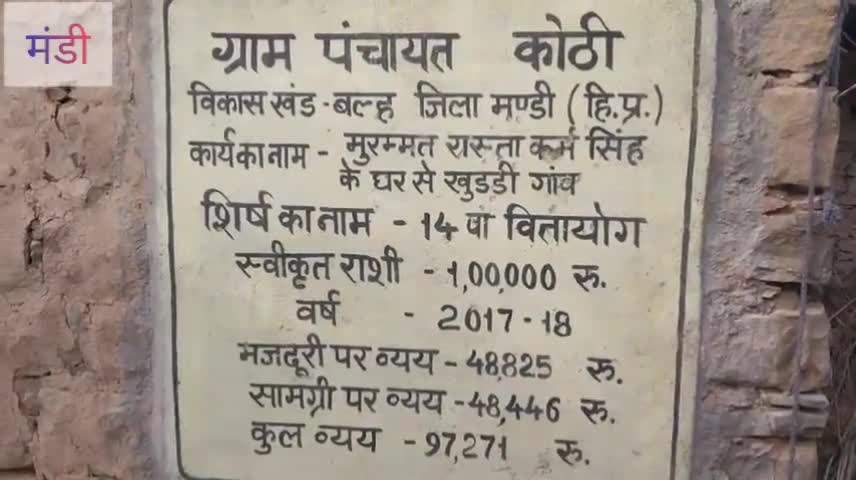 मंडी
ग्राम पंचायत कोठी
विकास खंड - बल्ह जिला मण्डी (हि.प्र.)
कार्य का नाम - मुरम्मत रास्ता कर्म सिंह
के घर से खुडडी गांव
शिर्ष का नाम - 14 वां वितायोग
स्वीकृत राशी - 1,00,000 रु.
वर्ष - 2017-18
मजदूरी पर व्यय - 48,825 रु.
सामग्री पर व्यय - 48,446 रु.
कुल व्यय - 97,271 रु.